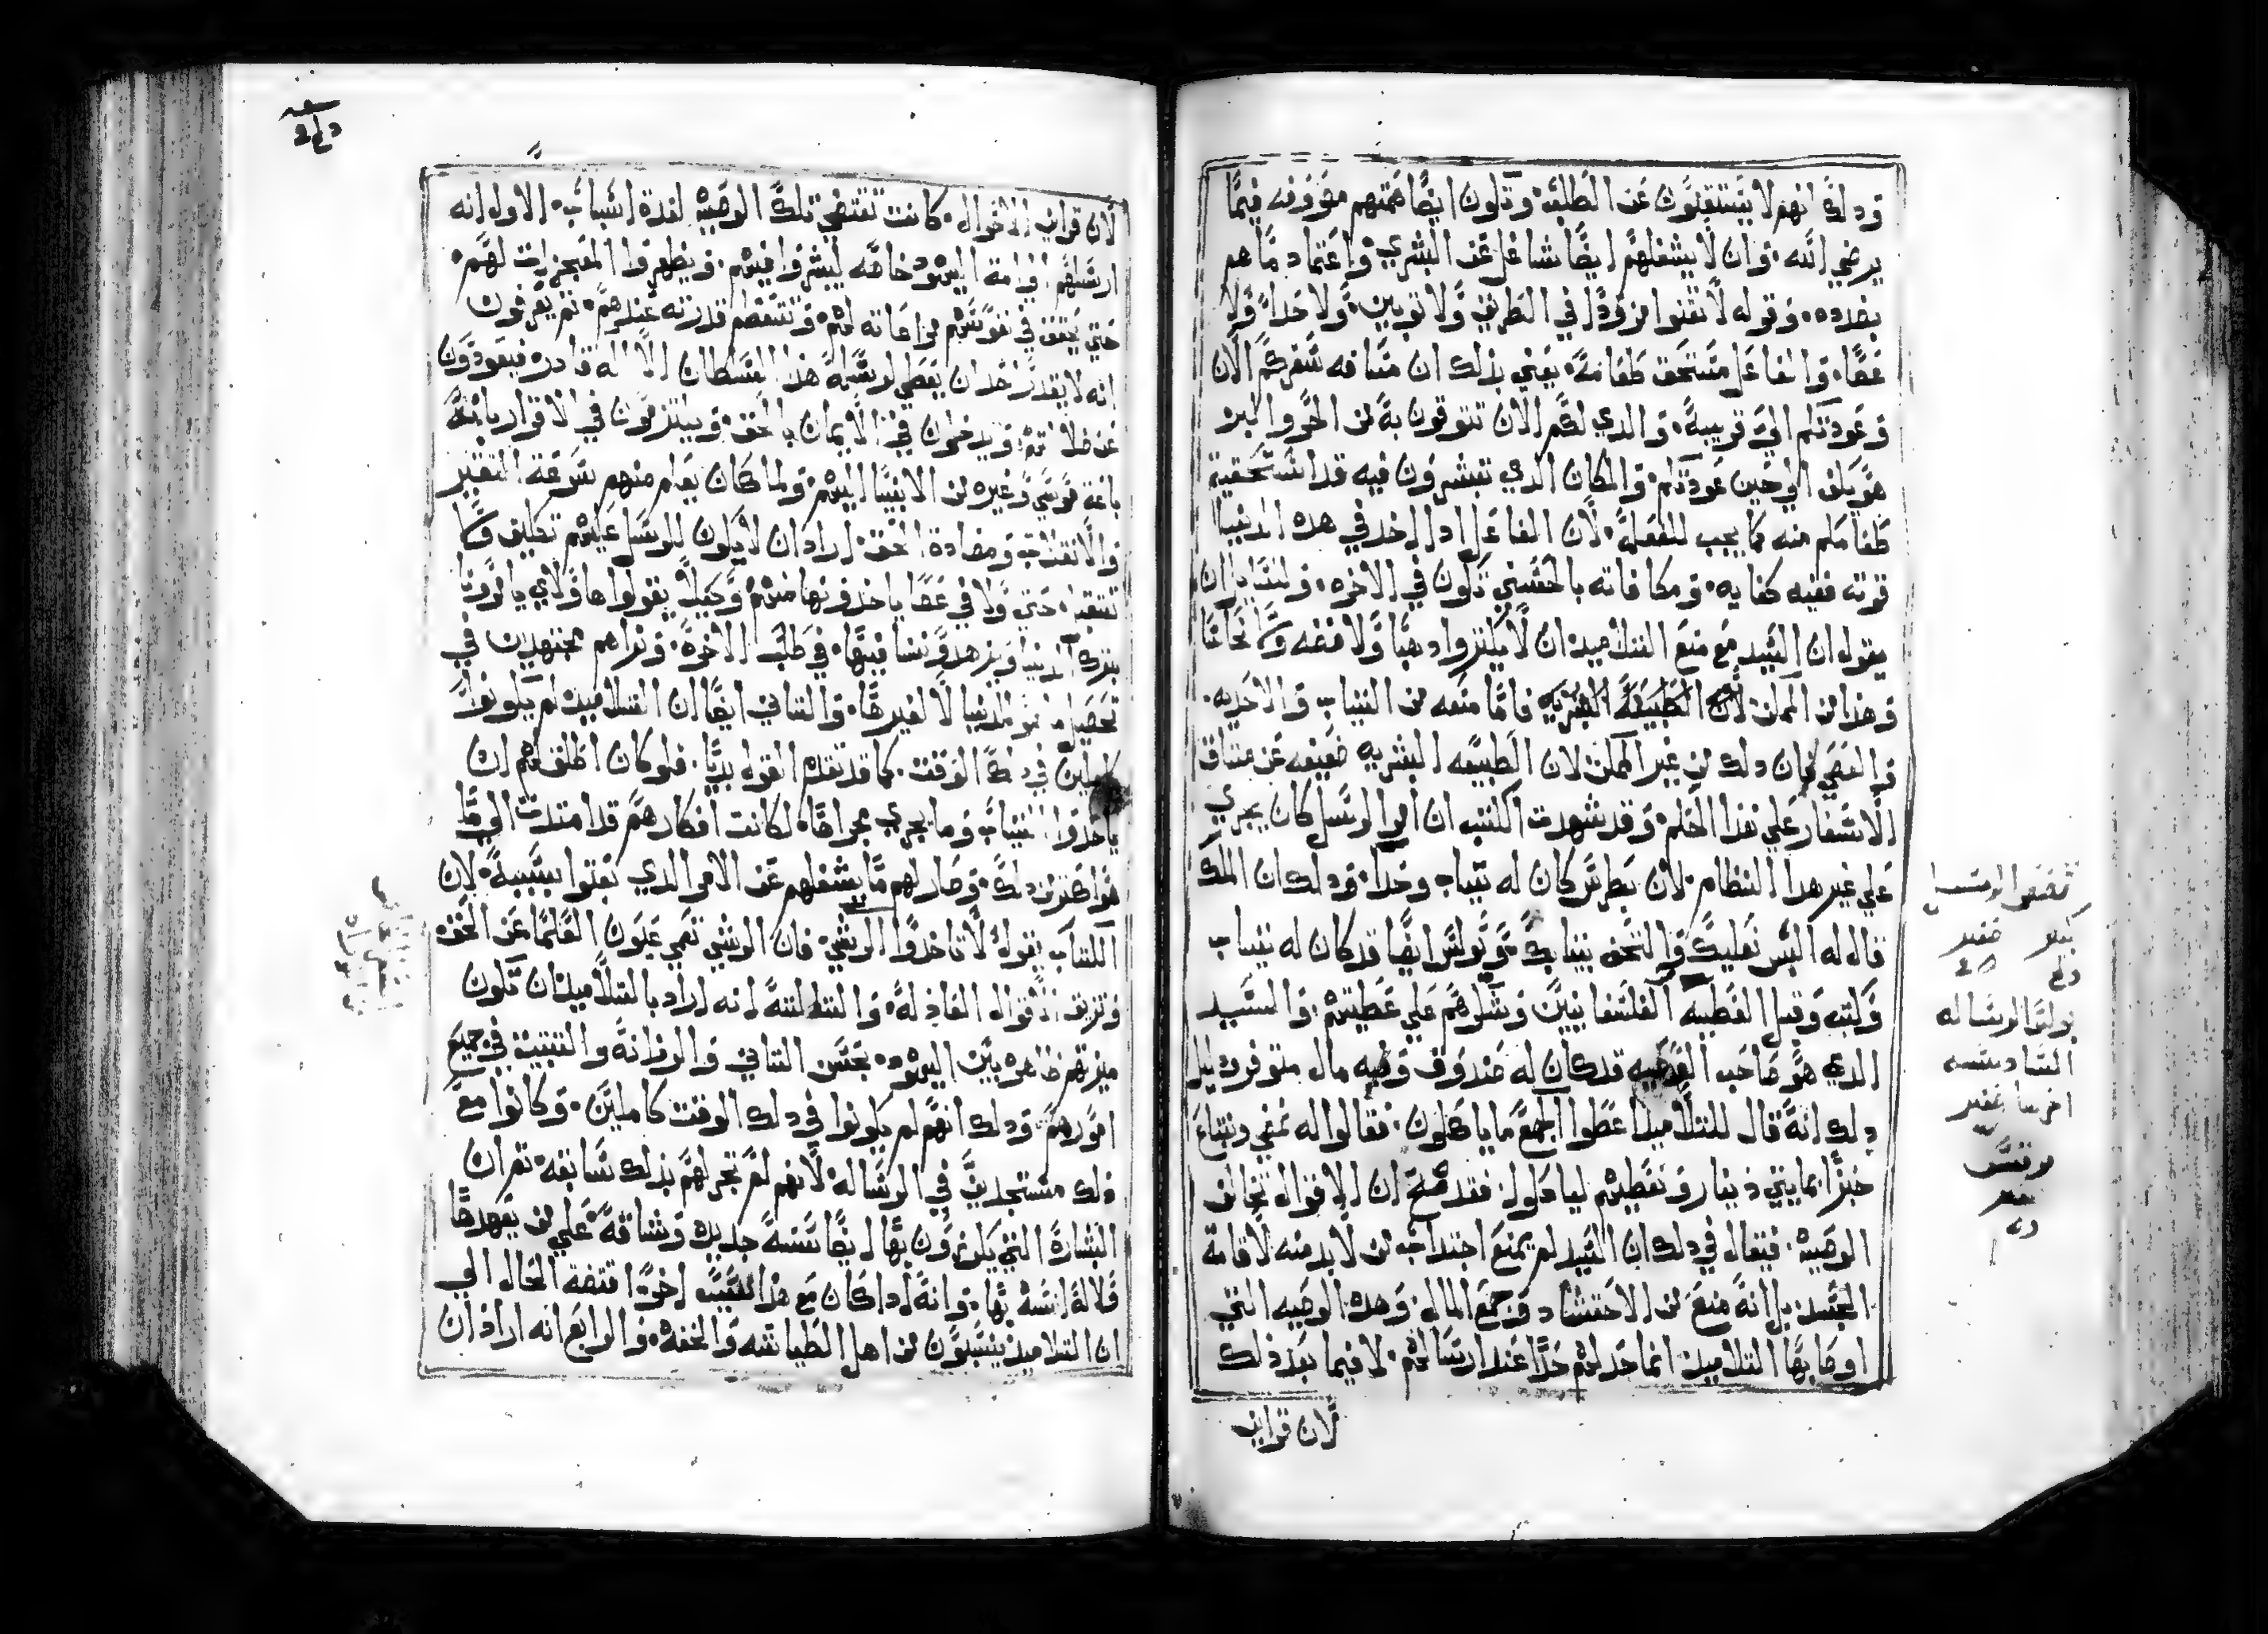 ودلك انهم لا يستقنون عن الطلبه وتكون ايضا همتهم مصروفه فيما
يرضي الله وان لا يشغلهم ايضا شاغل عن البشري واعتماد ما هم
بصدده وقوله لا تقنوا مزودا في الطريق ولا توبين ولا حدا ولا
عصا والفاعل مستحق طعامه يعني بذلك ان مسافه سفركم الان
وعودتكم الي قريبة والدي لكم الان تتوقون به من الحر والبرد
هو يكفي الي حين عودتكم والمكان الدي تبشرون فيه قد استحقيتم
طعامكم منه كما يجب للفعله لان الفاعل ادا اخد في هده الدنيا
قوته ففيه كفايه ومكافاته بالحسني تكون في الاخره ولسايل ان
يقول ان السيد مع منع التلاميد ان لا يكنزوا دهبا ولا فضه ولا نحاسا
وهذا من الممكن لان الطبيعة البشريه فاما منعه من التياب والاحديه
والعصي فان دلك من غير الممكن لان الطبيعه البشريه ضعيفه عن مشاق
الاسفار علي هذا الحكم وقد شهدت الكتب ان امر الرسل كان يجري
علي غير هدا النظام لان بطرس كان له تياب وحدا ودلك ان الملك
قال له البس نعليك والتحف بتيابك وبولس ايضا قد كان له تياب
وكتب وقبل العطيه الفلسفانيين وشكرهم علي عطيتهم والسيد
الدي هو صاحب الوصيه قد كان له صندوق وفيه مال متوفر دليل
دلك انه قال للتلاميد اعطوا الجمع ما ياكلون فقالوا له نمضي ونبتاع
خبزا بمايتي دينار ونعطيهم لياكلوا فقد صح ان الاقوال تخالف
الوصيه فيقال في دلك ان السيد لم يمنع اجتداب من لا بد منه لاقامة
الجسد بل انه منع من الاحتشاد وجمع المال وهده الوصيه التي
اوصا بها التلاميد انما حد لهم حدا عند ارسالهم لا فيما بعد ذلك
لان قراين
بولس الرساله
السادسه
لان قراين الاحوال كانت تقتضي تلك الوصيه لعدة اسباب الاول انه
ارسلهم الي امة اليهود خاصه ليبشروا فيهم ويظهروا المعجزات لهم
حتي يتحقق في نفوسهم مراعاته لهم وتتعظم قدرته عندهم تم يعرفون
انه لا يقدر احد ان يعطي لرسله هذا السلطان الا اله قادر فيعودون
عن ضلالتهم ويدخلون في الايمان بالحق ويلتزمون في الاقرار بانه
باعت موسي وغيره من الانبيا اليهم ولما كان يعلم منهم سرعة التغير
والانقلاب ومضادة الحق اراد ان لا يكون للرسل عليهم تكليف ولا
تتقيل حتي ولا في عصا ياخذونها منهم وحيلا يقولوا هاولاي يامرونا
بترك الدنيا ويزهدونا فيها في طلب الاخرة ونراهم مجتهدين في
تحصيل امور الدنيا لا لغيرها والتاني ايضا ان التلاميد لم يكونوا
كاملين في دلك الوقت كما قد تقدم القول بديا فلو كان اطلق لهم ان
ياخدوا التياب وما يجري مجراها لكانت افكارهم قد امتدت الي ما
هو اكتر من دلك وصار لهم ما يشغلهم عن الامر الدي بعتوا بسببه لان
الكتاب يقول لا تاخدوا الرشي فان الرشي تعمي عيون العلما عن الحق
وتزيف الاقوال العادله والتالتة انه اراد بالتلاميد ان تكون
ميزتهم ظاهره بين اليهود بحسن التاني والرزانة والتتبت في جميع
امورهم ودلك انهم لم يكونوا في دلك الوقت كاملين وكانوا مع
ذلك مستجدين في الرساله لانهم لم تجر لهم بذلك سابقه تم ان
البشارة التي يكرزون بها ايضا سنة جديده وشاقة علي من يعهدها
قلالة انسه بها وانه ادا كان مع هذا السبب اخر اقتضة الحال الي
ان التلاميذ ينسبون من اهل الطياشه والخفه والرابع انه اراد ان